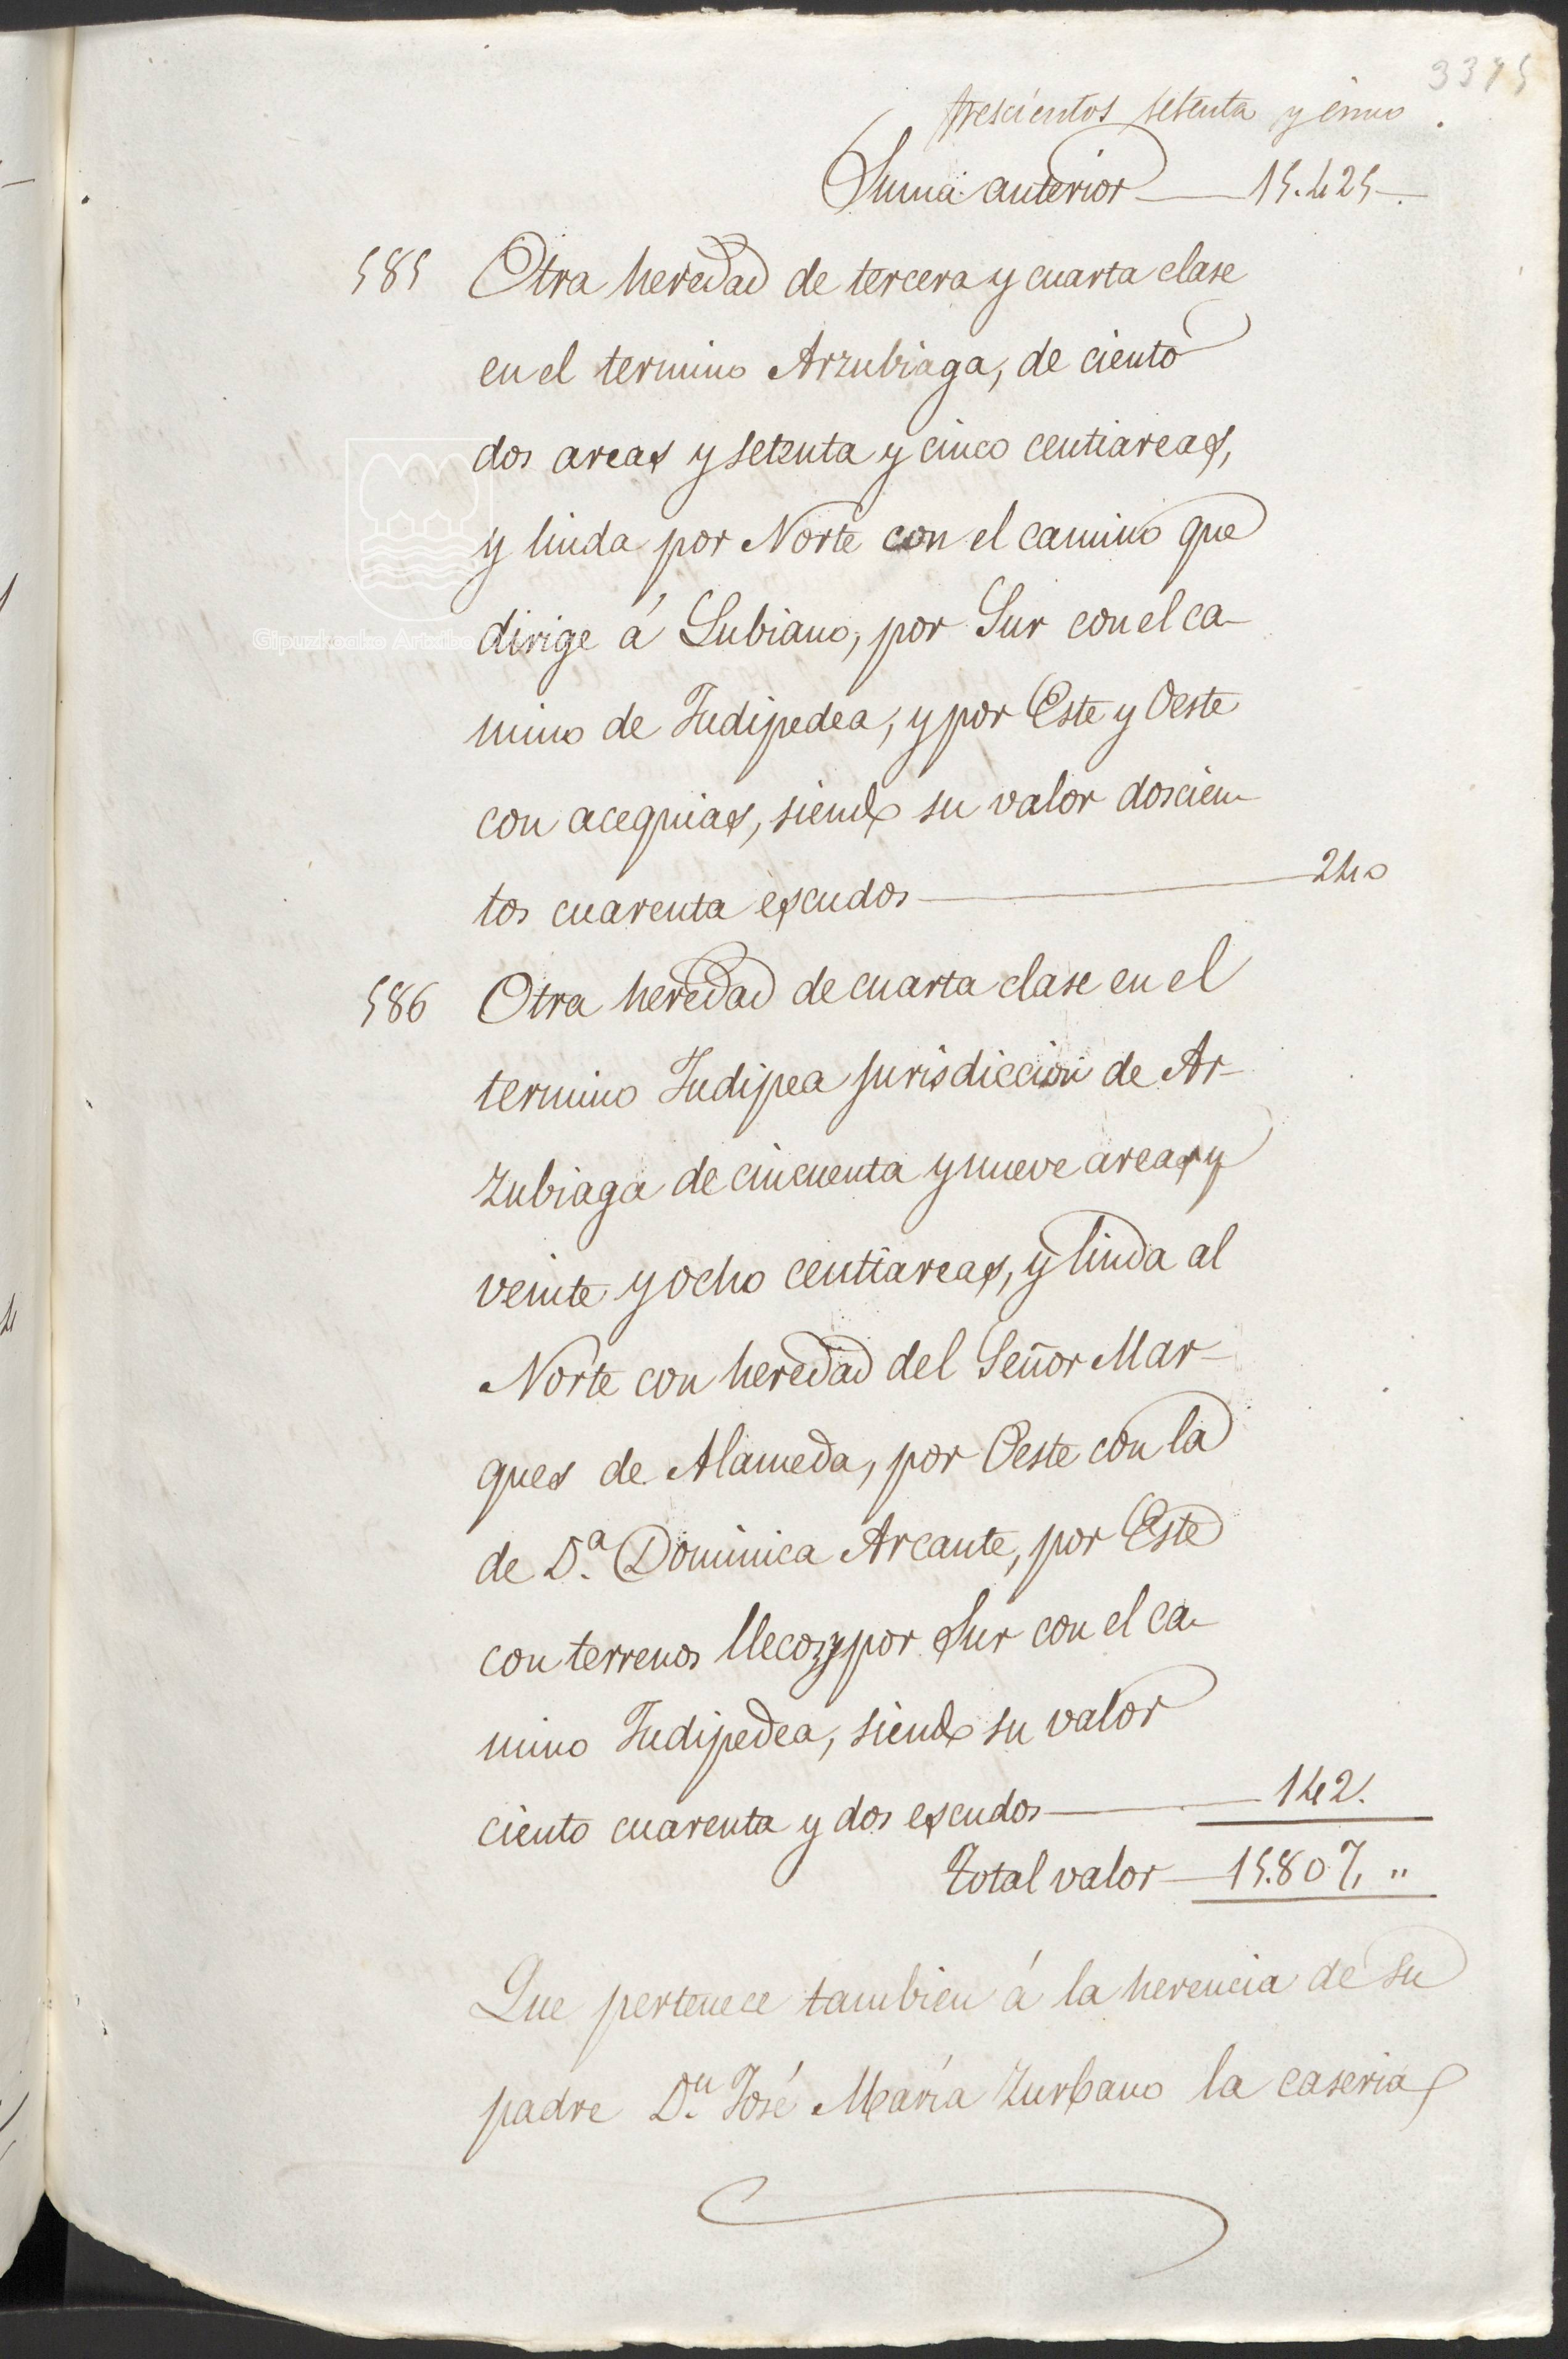 3375
trescientos setenta y cinco.
Suma anterior — 15.425 —.
585 Otra heredad de tercera y cuarta clase
en el termino Arzubiaga, de ciento
dos areas y setenta y cinco centiareas,
y linda por Norte con el camino que
dirige á Lubiano, por Sur con el ca-
mino de Indipedea, y por Este y Oeste
con acequias, siendo su valor doscien-
tos cuarenta escudos — 240
586 Otra heredad de cuarta clase en el
termino Indipea jurisdiccion de Ar-
zubiaga de cincuenta y nueve areas y
veinte y ocho centiareas, y linda al
Norte con heredad del Señor Mar-
ques de Alameda, por Oeste con la
de D.ª Dominica Arcante, por Este
con terrenos llecos, y por Sur con el ca-
mino Indipedea, siendo su valor
ciento cuarenta y dos escudos — 142.
Total valor — 15.807, "
Que pertenece tambien á la herencia de su
padre D.n José María Zurbano la caseria
Gipuzkoako Artxibo